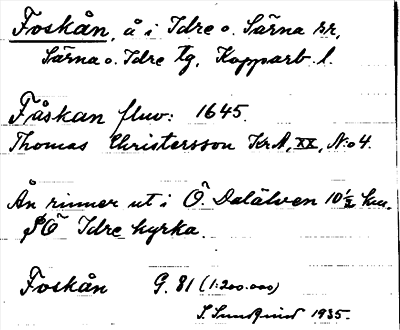 Foskån, å i Idre o. Särna sr,
Särna o. Idre tg, Kopparb. l.
Fåskan fluv: 1645.
Thomas Christersson KrA, XX, N:o 4.
Ån rinner ut i Ö. Dalälven 10½ km.
SÖ Idre kyrka.
Foskån G. 81 (1:200.000)
1935.